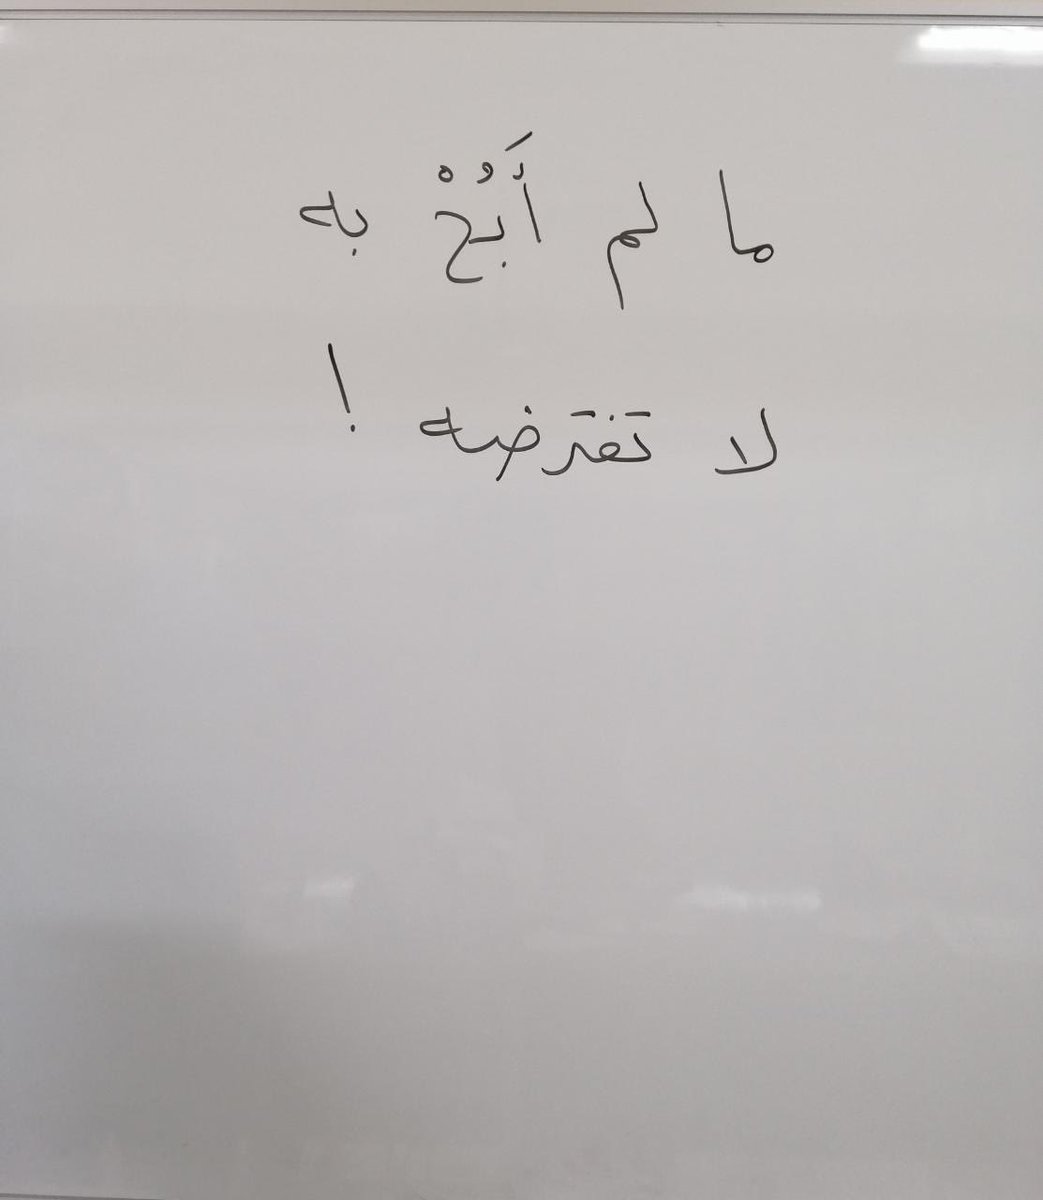 ما لم أَبُحْ به
لا تفترضه !